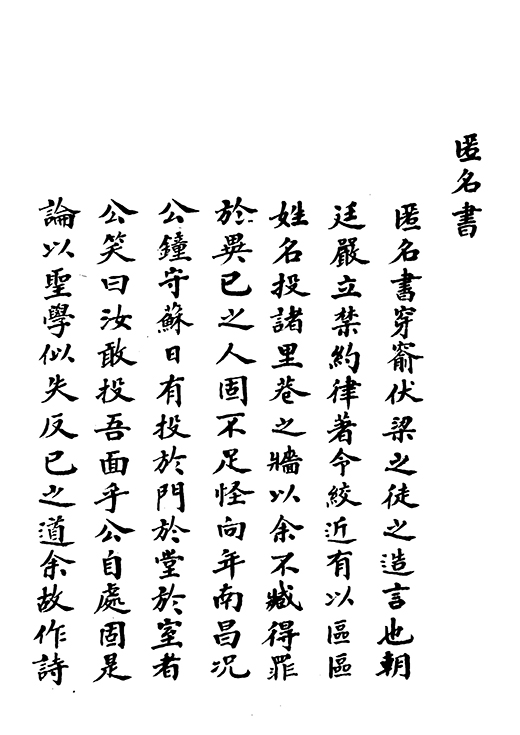 匿名書
匿名書穿窬伏梁之徒之造言也朝
廷嚴立禁約律著令絞近有以區區
姓名投諸里巷之牆以余不臧得罪
於異已之人固不足怪向年南昌况
公鐘守蘇日有投於門於堂於室者
公笑曰汝敢投吾面乎公自處固是
論以聖學似失反已之道余故作詩